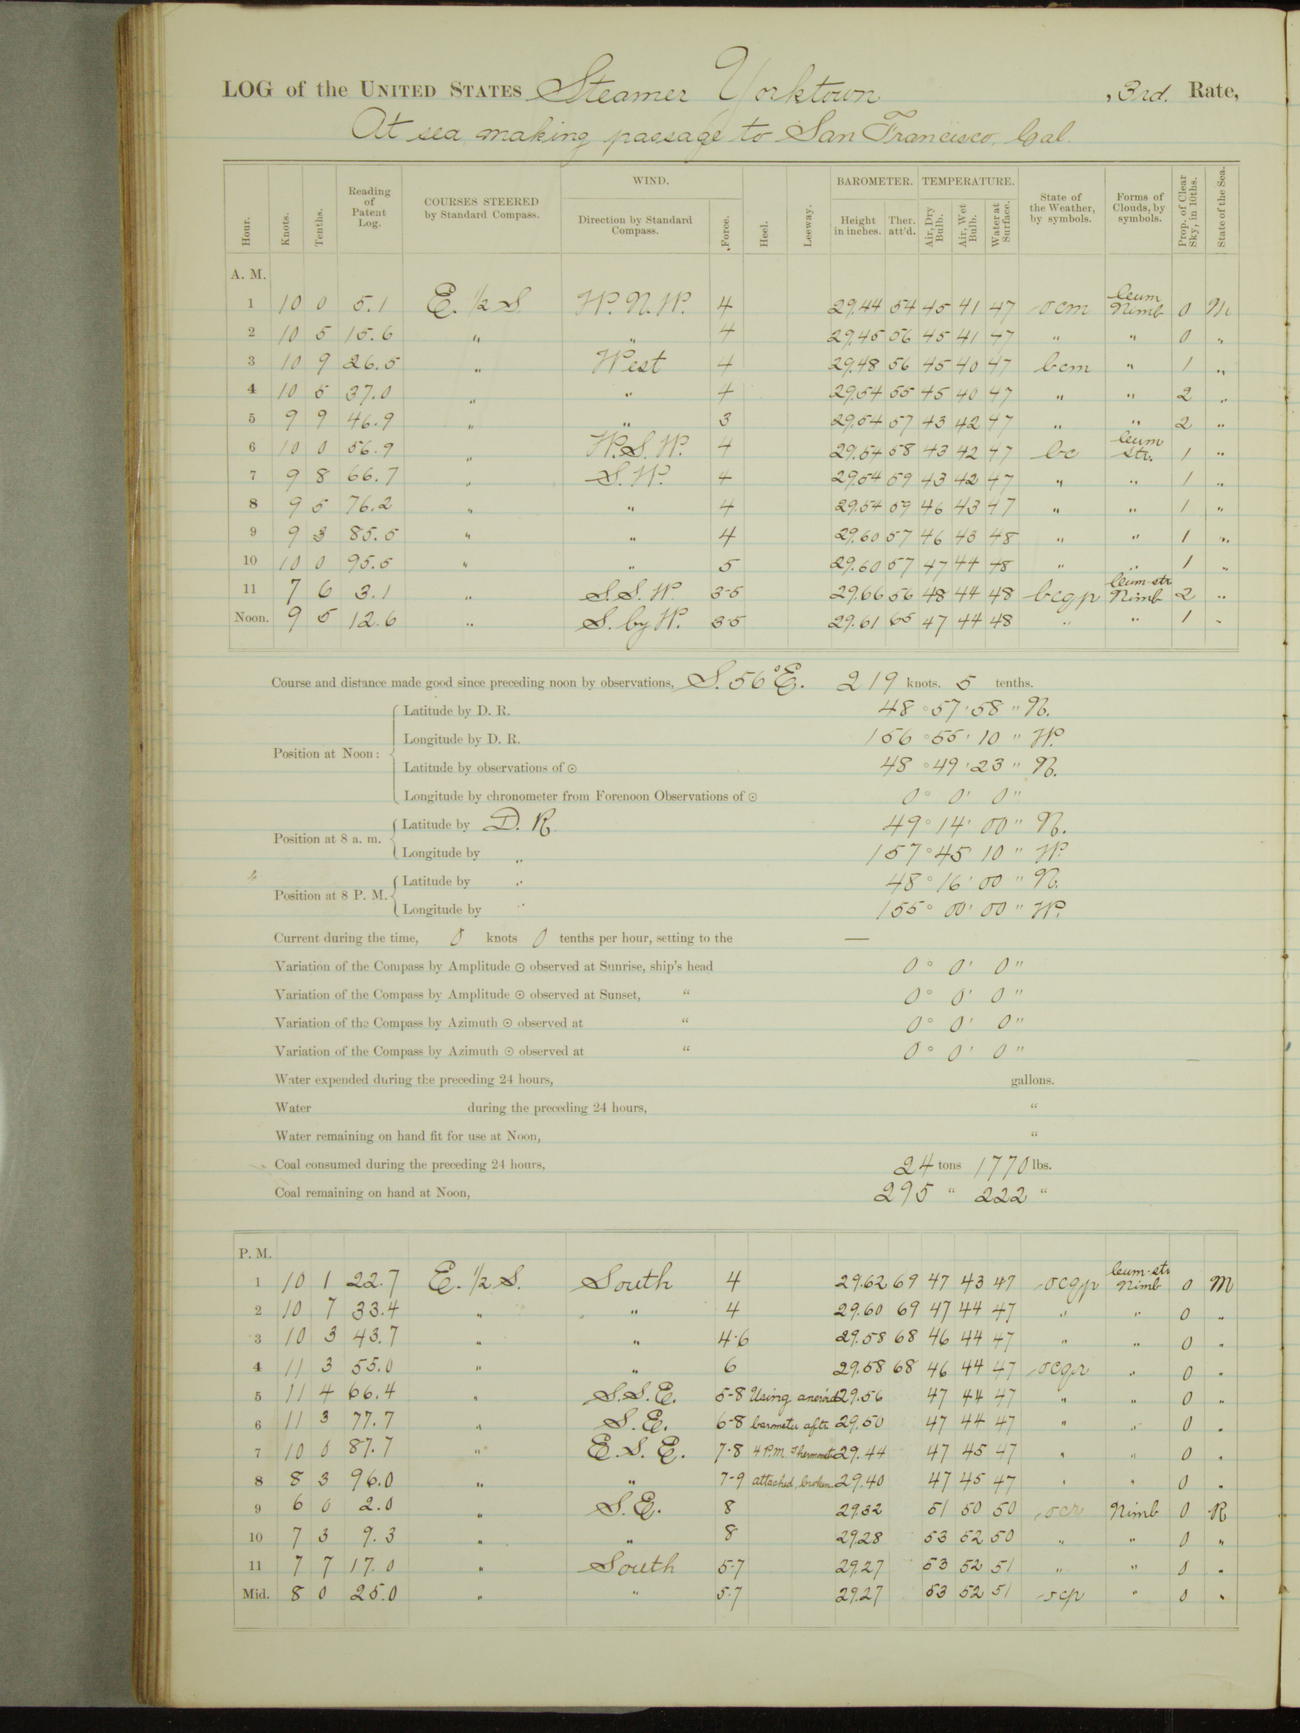 LOG of the UNITED STATES Steamer Yorktown , 3rd. Rate,
At sea, making passage to San Francisco, Cal.
Hour. Knots. Tenths. Reading of Patent Log. COURSES STEERED by Standard Compass. WIND. Direction by Standard Compass. Force. Heel. Leeway. BAROMETER. Height in inches. Ther. att'd. TEMPERATURE. Air, Dry Bulb. Air, Wet Bulb. Water at Surface. State of the Weather, by symbols. Forms of Clouds, by symbols. Prop. of Clear Sky, in 10ths. State of the Sea.
A. M.
1 10 0 5.1 E. 1/2 S. W.N.W. 4 29.44 54 45 41 47 ocm Cum Nimb 0 M
2 10 5 15.6 " " 4 29.45 56 45 41 47 " " 0 "
3 10 9 26.5 " West 4 29.48 56 45 40 47 bcm " 1 "
4 10 5 37.0 " " 4 29.54 55 45 40 47 " " 2 "
5 9 9 46.9 " " 3 29.54 57 43 42 47 " " 2 "
6 10 0 56.9 " W.S.W. 4 29.54 58 43 42 47 bc Cum Str. 1 "
7 9 8 66.7 " S.W. 4 29.54 59 43 42 47 " " 1 "
8 9 5 76.2 " " 4 29.54 59 46 43 47 " " 1 "
9 9 3 85.5 " " 4 29.60 57 46 43 48 " " 1 "
10 10 0 95.5 " " 5 29.60 57 47 44 48 " " 1 "
11 7 6 3.1 " S.S.W. 3-5 29.66 56 48 44 48 bcqp Cum-str Nimb 2 "
Noon. 9 5 12.6 " S. by W. 3-5 29.61 65 47 44 48 " " 1 "
Course and distance made good since preceding noon by observations, S. 56° E. 219 knots. 5 tenths.
Position at Noon: Latitude by D. R. 48° 57' 58" N.
Longitude by D. R. 156° 55' 10" W.
Latitude by observations of ☉ 48° 49' 23" N.
Longitude by chronometer from Forenoon Observations of ☉ 0° 0' 0"
Position at 8 a. m. Latitude by D. R. 49° 14' 00" N.
Longitude by " 157° 45' 10" W.
Position at 8 P. M. Latitude by " 48° 16' 00" N.
Longitude by " 155° 00' 00" W.
Current during the time, 0 knots 0 tenths per hour, setting to the —
Variation of the Compass by Amplitude ☉ observed at Sunrise, ship's head 0° 0' 0"
Variation of the Compass by Amplitude ☉ observed at Sunset, " 0° 0' 0"
Variation of the Compass by Azimuth ☉ observed at " 0° 0' 0"
Variation of the Compass by Azimuth ☉ observed at " 0° 0' 0"
Water expended during the preceding 24 hours, gallons.
Water during the preceding 24 hours, "
Water remaining on hand fit for use at Noon, "
Coal consumed during the preceding 24 hours, 24 tons 1770 lbs.
Coal remaining on hand at Noon, 295 " 222 "
P. M.
1 10 1 22.7 E. 1/2 S. South 4 29.62 69 47 43 47 ocqp Cum-str Nimb 0 M
2 10 7 33.4 " " 4 29.60 69 47 44 47 " " 0 "
3 10 3 43.7 " " 4-6 29.58 68 46 44 47 " " 0 "
4 11 3 55.0 " " 6 29.58 68 46 44 47 ocqr " 0 "
5 11 4 66.4 " S.S.E. 5-8 Using aneroid 29.56 47 44 47 " " 0 "
6 11 3 77.7 " S.E. 6-8 barometer after 29.50 47 44 47 " " 0 "
7 10 0 87.7 " E.S.E. 7-8 4 P.M. Thermometer 29.44 47 45 47 " " 0 "
8 8 3 96.0 " " 7-9 attached, broken. 29.40 47 45 47 " " 0 "
9 6 0 2.0 " S.E. 8 29.32 51 50 50 ocr Nimb 0 R
10 7 3 9.3 " " 8 29.28 53 52 50 " " 0 "
11 7 7 17.0 " South 5-7 29.27 53 52 51 " " 0 "
Mid. 8 0 25.0 " " 5-7 29.27 53 52 51 ocp " 0 "